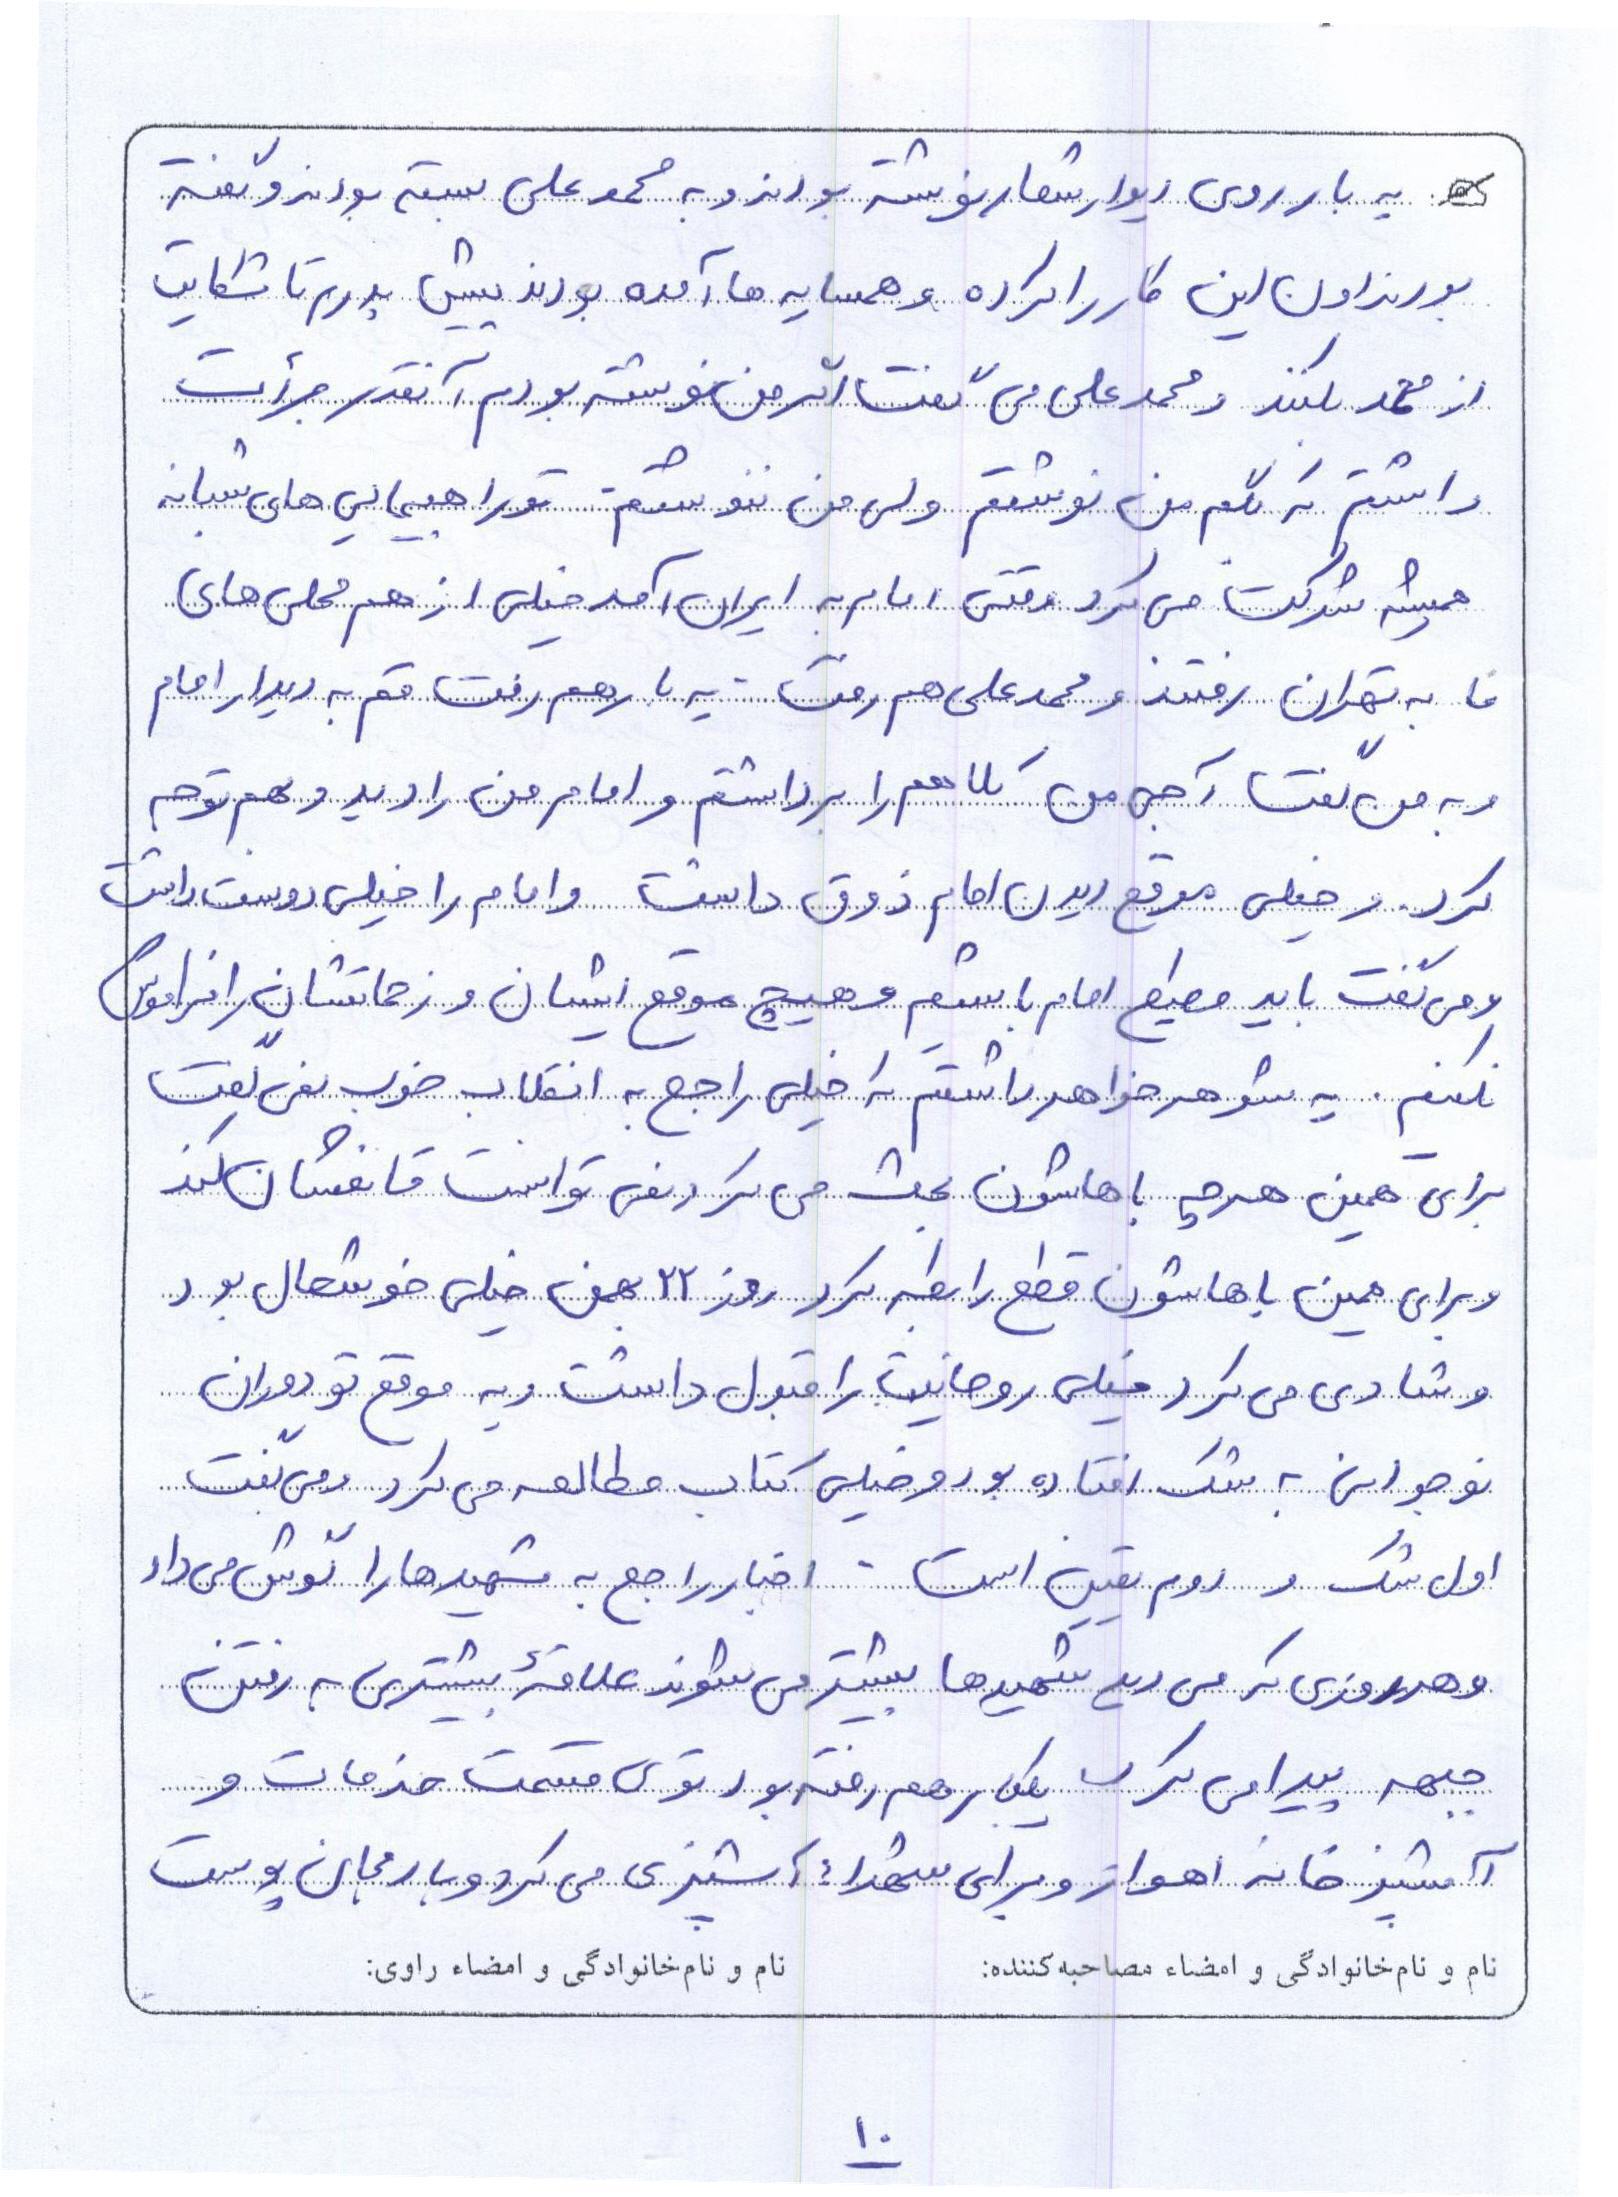 یه بار روی دیوار شعار نوشته بودند و به محمد علی بسته بودند و گفته
بودند اون این کار را کرده و همسایه ها آمده بودند پیش پدرم تا شکایت
از محمد بکنند و محمد علی می گفت اگر من نوشته بودم آنقدر جرأت
داشتم که بگم من نوشتم ولی من ننوشتم. تو راهپیمایی های شبانه
همیشه شرکت می کرد وقتی امام به ایران آمد خیلی از هم محلی های
ما به تهران رفتند و محمد علی هم رفت. یه بار هم رفت قم به دیدار امام
و به من گفت آجی من کلاهم را برداشتم و امام من را دید و بهم توجه
کرد. و خیلی موقع دیدن امام ذوق داشت و امام را خیلی دوست داشت
و می گفت باید مطیع امام باشیم و هیچ موقع ایشان و زحماتشان را فراموش
نکنیم. یه شوهر خواهر داشتیم که خیلی راجع به انقلاب خوب نمی گفت
برای همین هر چه باهاشون بحث می کرد نمی توانست قانعشان کند
و برای همین باهاشون قطع رابطه کرد روز ۲۲ بهمن خیلی خوشحال بود
و شادی می کرد خیلی روحانیت را قبول داشت و یه موقع تو دوران
نوجوانی به شک افتاده بود و خیلی کتاب مطالعه می کرد و می گفت
اول شک و دوم یقین است. اخبار راجع به شهیدها را گوش می داد
و هر روزی که می دید شهیدها بیشتر می شوند علاقهٔ بیشتری به رفتن
جبهه پیدا می کرد یکبار هم رفته بود توی قسمت خدمات و
آشپزخانه اهواز و برای شهداء آشپزی می کرد و بادمجان پوست
نام و نام‌خانوادگی و امضاء مصاحبه‌کننده: نام و نام‌خانوادگی و امضاء راوی:
۱۰